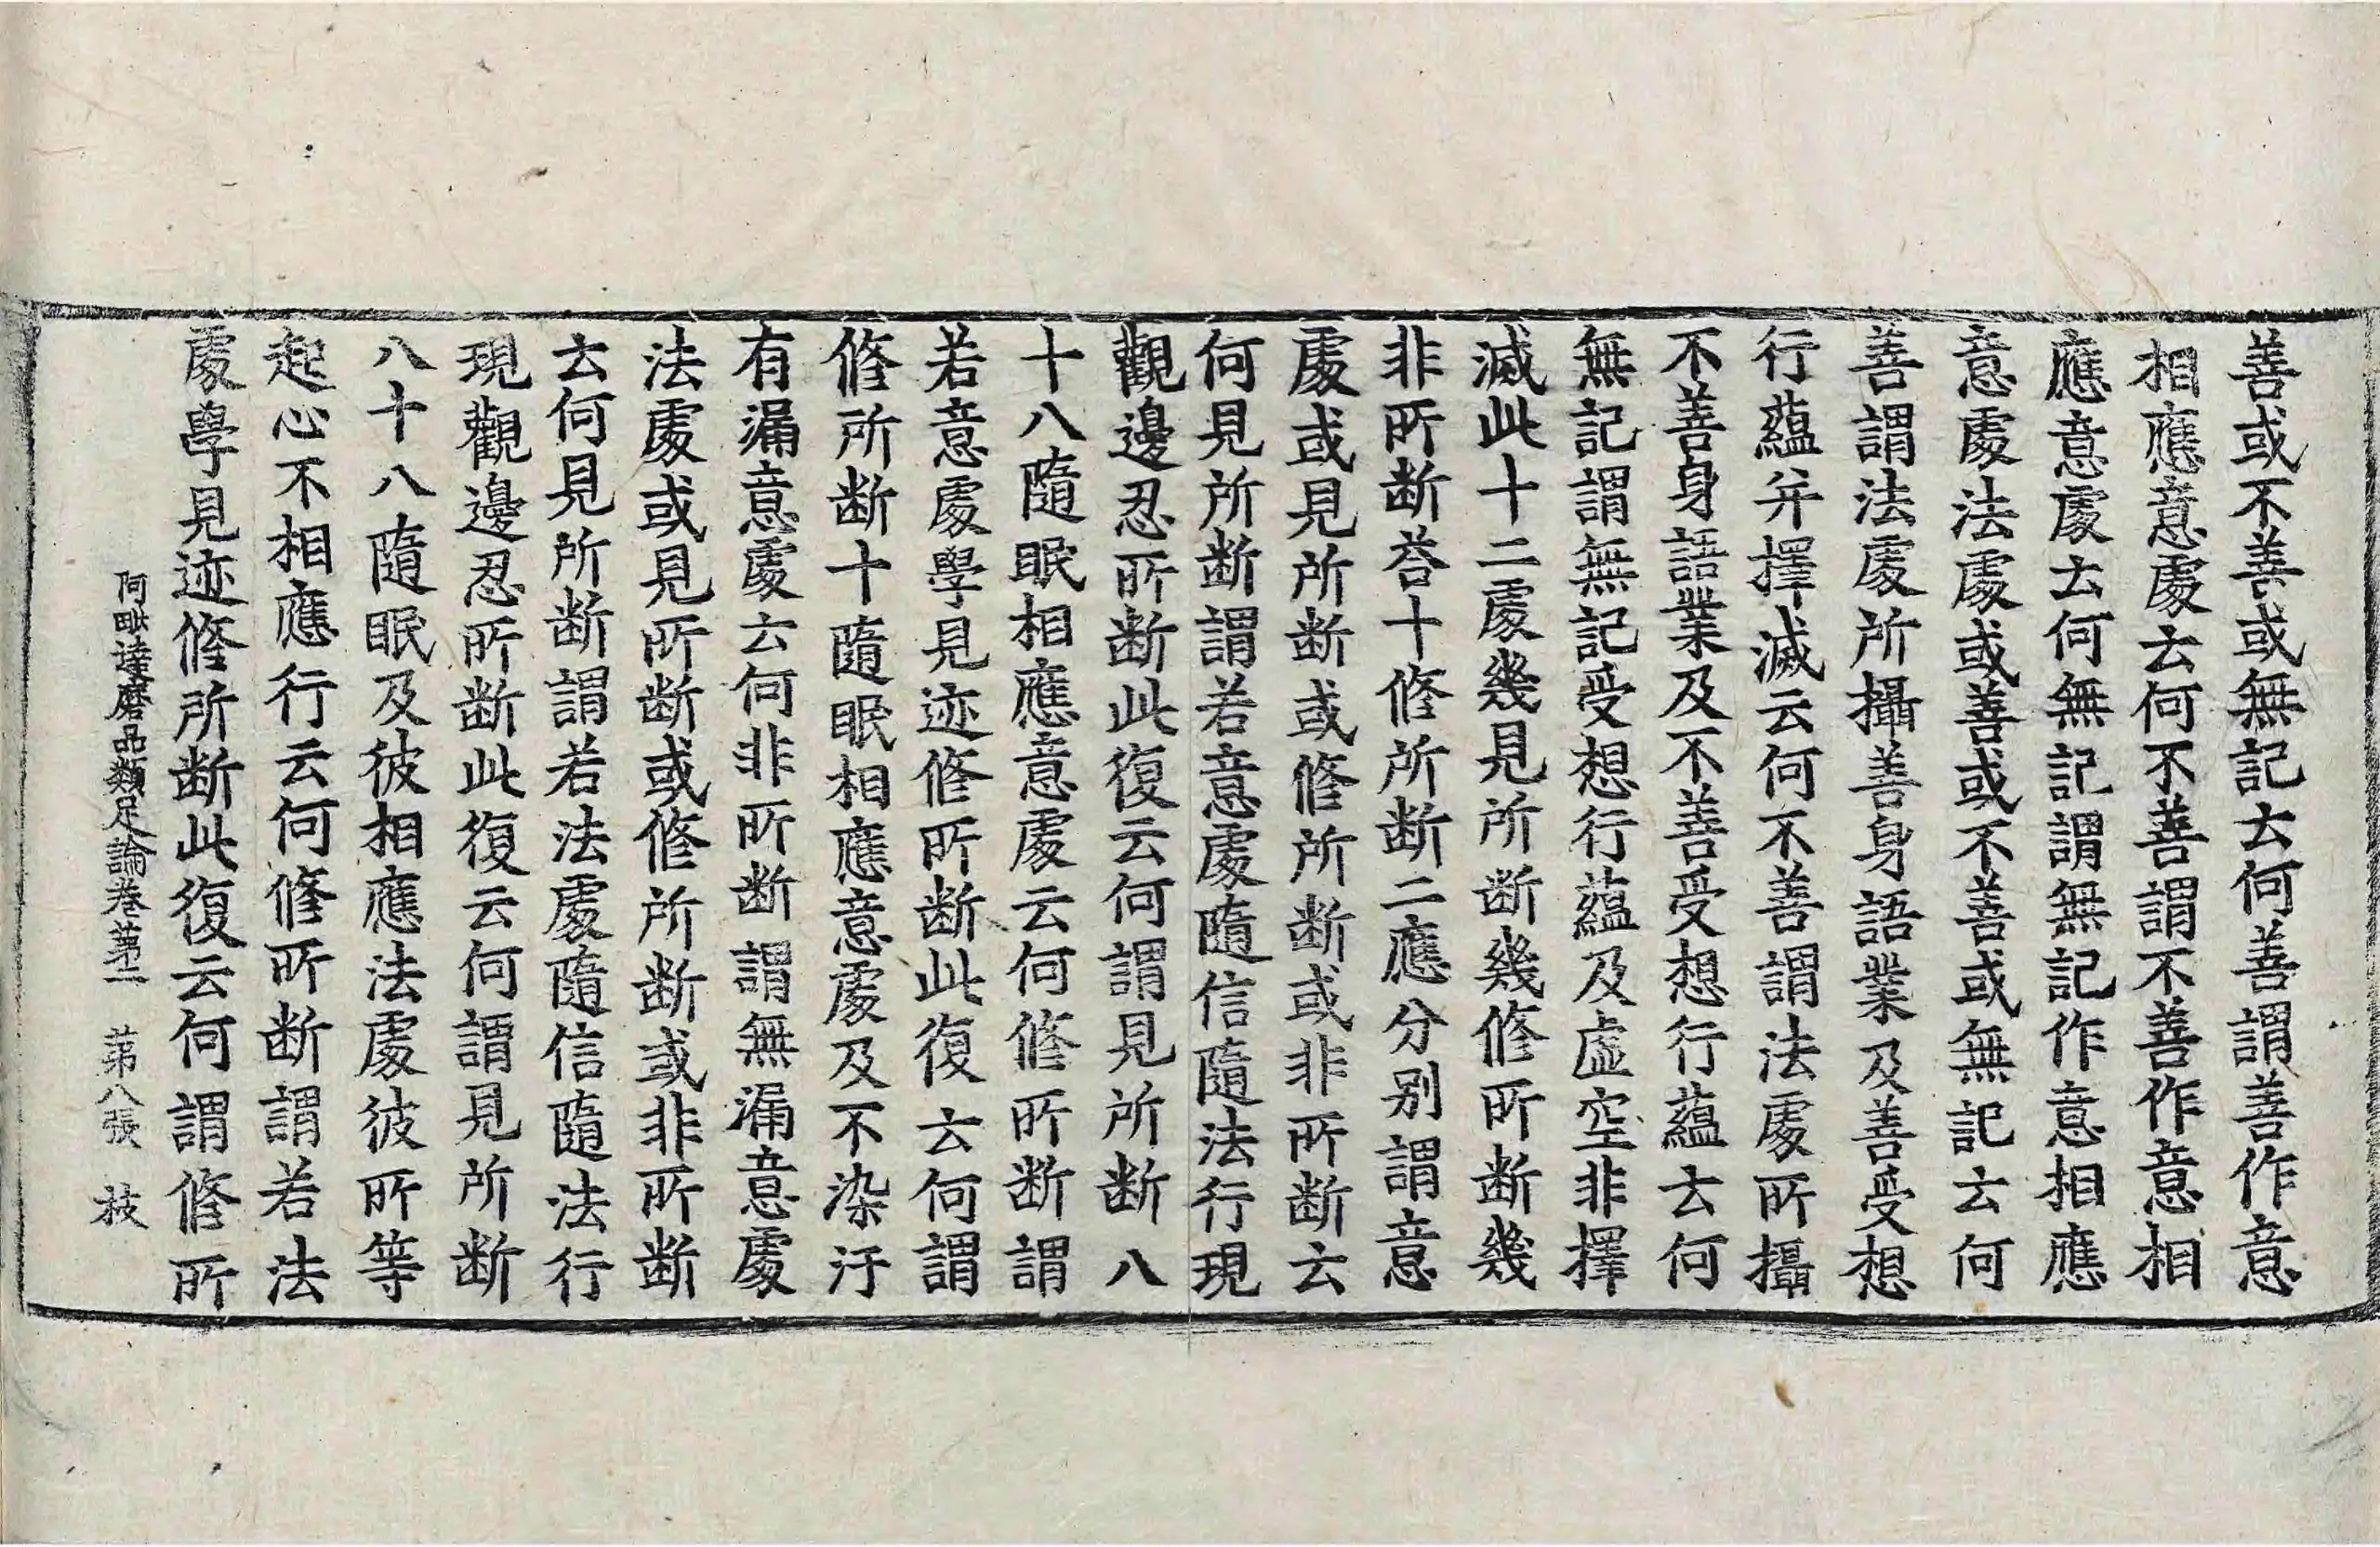 善或不善或無記云何善謂善作意
相應意處云何不善謂不善作意相
應意處云何無記謂無記作意相應
意處法處或善或不善或無記云何
善謂法處所攝善身語業及善受想
行蘊并擇滅云何不善謂法處所攝
不善身語業及不善受想行蘊云何
無記謂無記受想行蘊及虛空非擇
滅此十二處幾見所断幾修所断幾
非所断荅十修所断二應分別謂意
處或見所断或修所断或非所断云
何見所断謂若意處隨信隨法行現
觀邊忍所断此復云何謂見所断八
十八隨眠相應意處云何修所断謂
若意處學見迹修所断此復云何謂
修所断十隨眠相應意處及不染汙
有漏意處云何非所断謂無漏意處
法處或見所断或修所断或非所断
云何見所断謂若法處隨信隨法行
現觀邊忍所断此復云何謂見所断
八十八隨眠及彼相應法處彼所等
起心不相應行云何修所断謂若法
處學見迹修所断此復云何謂修所
阿毗達磨品類足論卷第二 第八張 枝